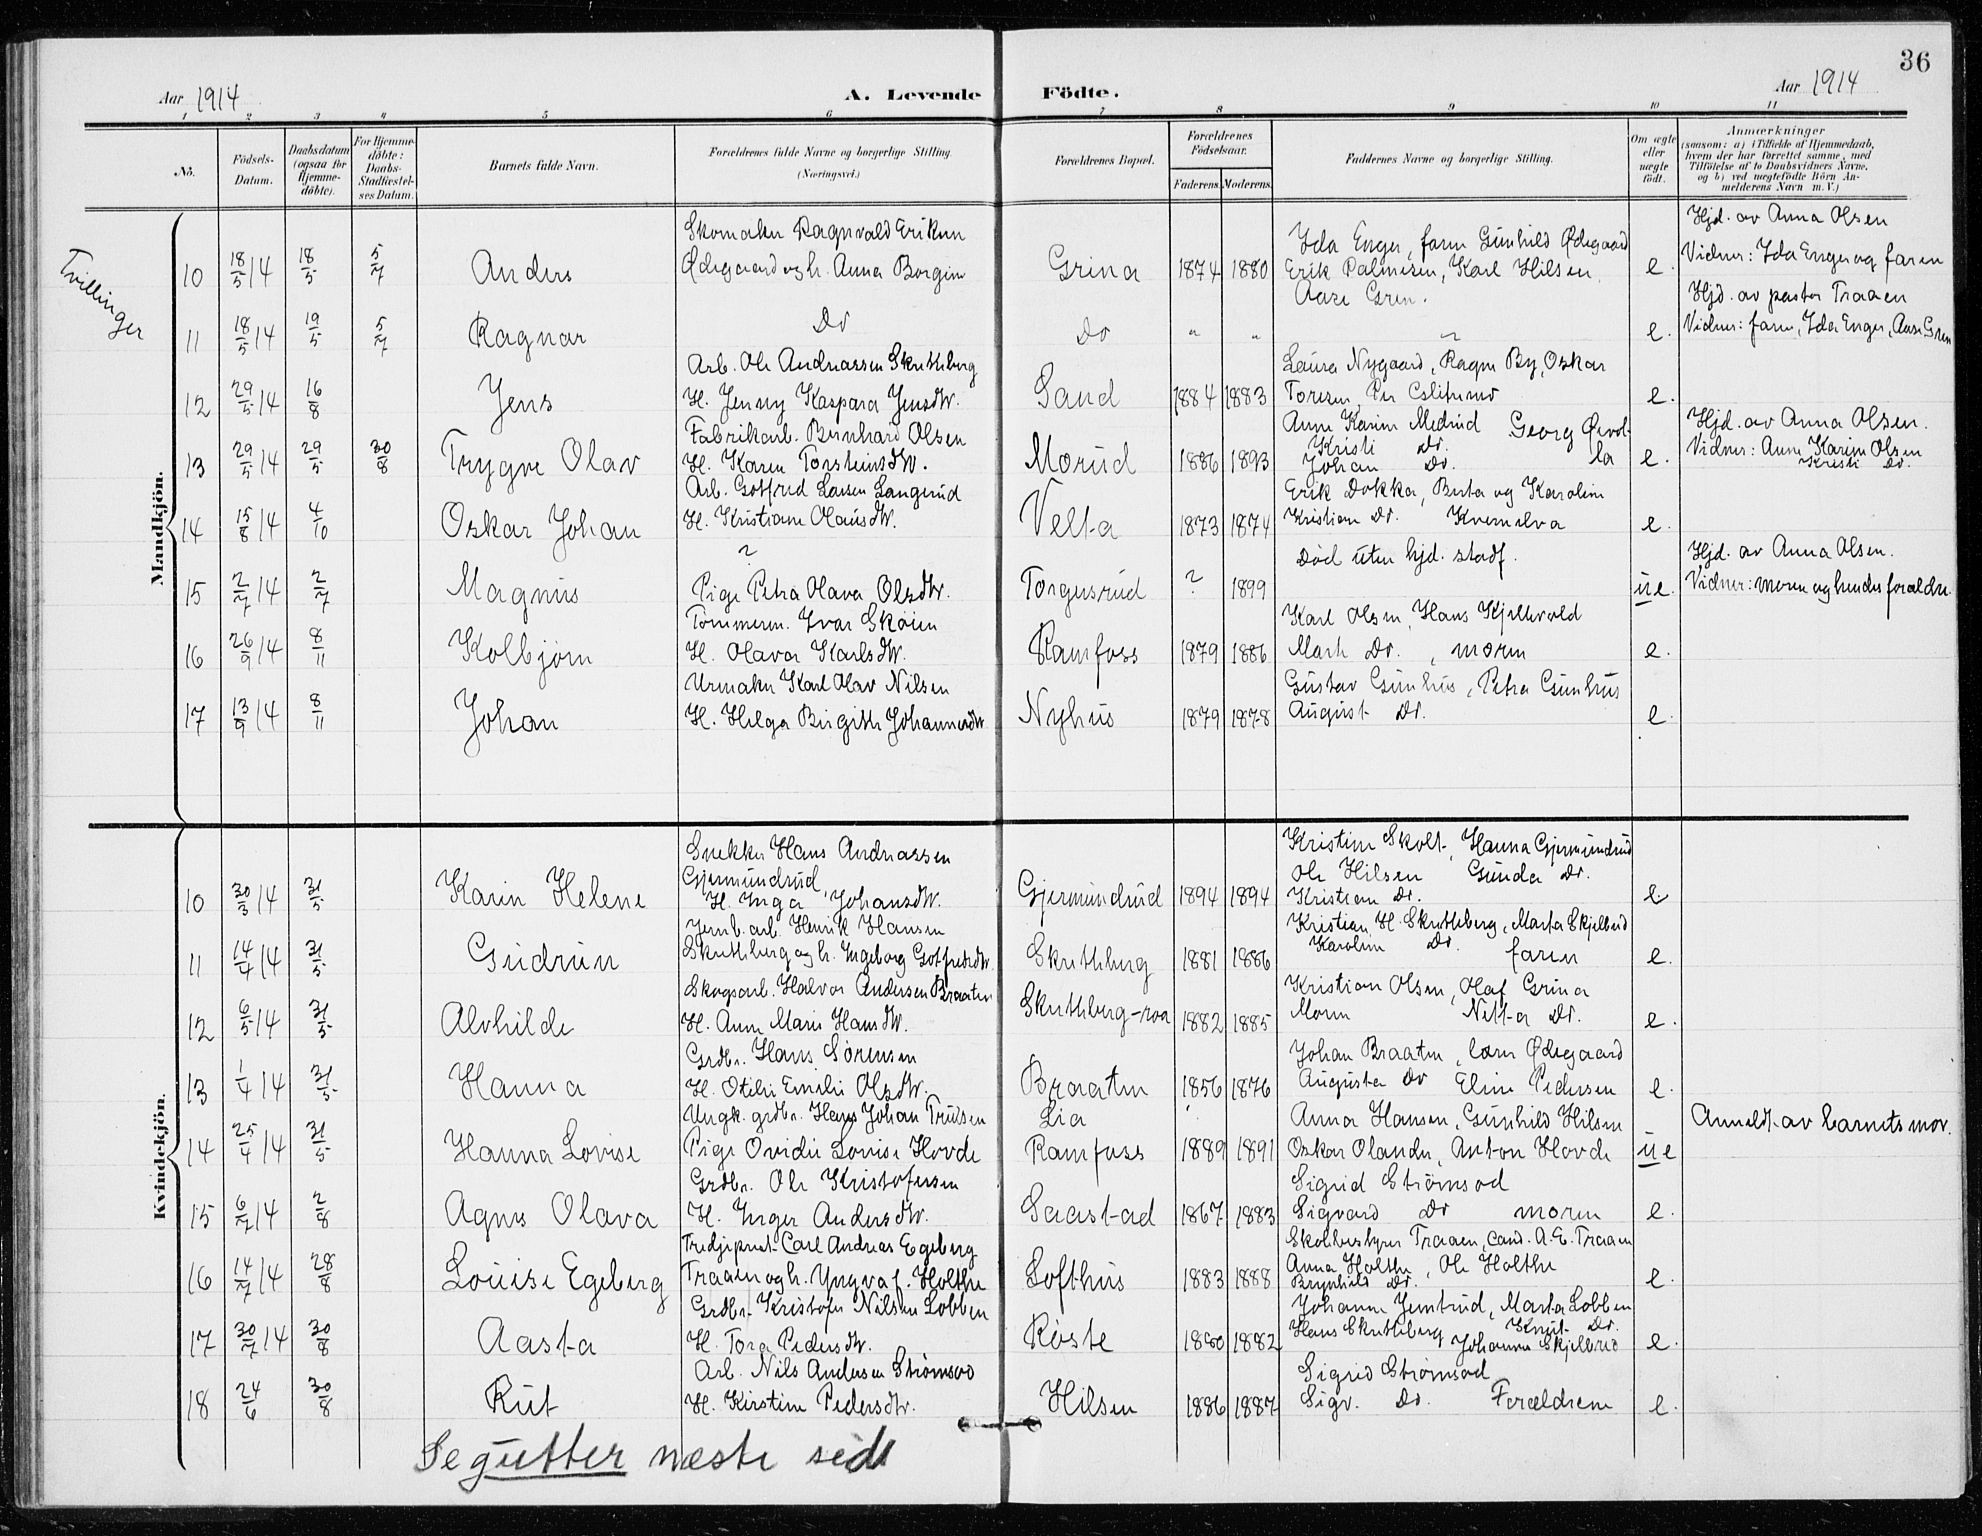 36
Aar 1914
A. Levende Födte.
Aar 1914
1 2 3 4 5 6 7 8 9 10 11
No.
Födsels-Datum.
Daabsdatum (ogsaa for Hjemme-döbte).
For Hjemme-döbte: Daabs-Stadfæstel-ses Datum.
Barnets fulde Navn.
Forældrenes fulde Navne og borgerlige Stilling.
(Næringsvei.)
Forældrenes Bopæl.
Forældrenes Födselsaar.
Faderens. Moderens.
Faddernes Navne og borgerlige Stilling.
Om ægte eller uægte födt.
Anmærkninger
(saasom: a) i Tilfælde af Hjemmedaab, hvem der har forrettet samme, med Tilföielse af to Daabsvidners Navne, og b) ved uægtefödte Börn An-melderens Navn m. V.)
Mandkjön.
Tvillinger
Skomaker Ragnvald Eriksen
Ida Enger, faren Gunhild Ødegaard
Hjd. av Anna Olsen
10 18/5 14 18/5 5/7 Anders Ødegaard og h. Anna Borgine Grina 1874 1880 Erik Palmesen, Karl Hilsen e. Vidner: Ida Enger og faren
Aase Gren.
Hjd. av pastor Traaen
11 18/5 14 19/5 5/7 Ragnar Do Do " " " e. Vidner: faren, Ida Enger, Aase Gren
Arb. Ole Andreassen Skuthberg
Laura Nygaard, Ragna By, Oskar
12 29/5 14 16/8 Jens H. Jenny Kaspara Jensdtr. Sand 1884 1883 Toresen, Per e.
Fabrikarb. Bernhard Olsen
Anne Karine Medrud Georg Ørvol-
Hjd. av Anna Olsen.
Kristi Do.
13 29/5 14 29/5 30/8 Trygve Olav H. Karen Torsteinsdtr. Morud 1886 1893 Johan Do. la e. Vidner: Anne Karine Olsen
Kristi Do.
Arb. Gotfred Larsen Langerud
Erik Dokka, Berta og Karoline
14 15/8 14 4/10 Oskar Johan H. Kristiane Olausdtr. Velta 1873 1874 Kristian Do. Kvernelva e.
?
Død uten hjd. stadf.
Hjd. av Anna Olsen.
15 2/7 14 2/7 Magnus Pige Petra Olava Olsdtr. Torgusrud ? 1899 ue. Vidner: moren og hendes forældre.
Tømmerm. Ivar Skøien
Karl Olsen, Hans Kjellevold
16 26/9 14 8/11 Kolbjørn H. Olava Karlsdtr. Ramfoss 1879 1886 Marte Do., moren e.
Urmaker Karl Olav Nilsen
Gustav Gunhus, Petra Gunhus
17 13/9 14 8/11 Johan H. Helga Birgithe Johannesdtr Nyhus 1879 1878 August Do. e.
Kvindekjön.
Snekker Hans Andreassen
Kristine Skolt, Hanna Gjermundrud
Gjermundrud
Ole Hilsen Gunda Do.
10 30/3 14 31/5 Karin Helene H. Inga Johansdtr. Gjermundrud 1894 1894 Kristian Do. e
Jernb. arb. Henrik Hansen
Kristian H. Skuthberg, Marta Skjelbred
11 14/4 14 31/5 Gudrun Skuthberg og h. Ingeborg Gotfredsdtr. Skuthberg 1881 1886 Karoline Do. faren e.
Skogsarb. Halvor Andersen Braaten
Kristian Olsen, Olaf Grina
12 6/5 14 31/5 Alvhilde H. Anne Marie Hansdtr. Skuthberg-roa 1882 1885 Moren Netta Do. e.
Grdbr. Hans Sørensen
Johan Braaten, Caren Ødegaard
13 1/4 14 31/5 Hanna H. Otilie Emilie Olsdtr. Braaten 1856 1876 Augusta Do Eline Pedersen e.
Ungk. grdbr. Hans Johan Trulsen
Lia
Anna Hansen, Gunhild Hilsen
14 25/4 14 31/5 Hanna Lovise Pige Ovidie Lovise Hovde Ramfoss 1889 1891 Oskar Olander, Anton Hovde ue Anmeldt av barnets mor.
Grdbr. Ole Kristofersen
Sigrid Strømsod
15 6/7 14 2/8 Agnes Olava H. Inger Andersdtr. Saastad 1867 1883 Sigvard Do moren e.
Tredjeprest Carl Andreas Egeberg
Skolbestyrer Traaen, cand. A. E. Traaen
16 14/7 14 28/8 Louise Egeberg Traaen og h. Yngva f. Holthe Lofthus 1883 1888 Anna Holthe, Ole Holthe e.
Brynhild Do.
Grdbr. Kristofer Nilsen Lobben
Johanne Jemtrud, Marta Lobben
17 30/7 14 30/8 Aasta H. Tora Pedersdtr. Røste 1880 1882 Hans Skuthberg Knut Do. e.
Johanne Skjelbred
Arb. Nils Andersen Strømsod
Sigrid Strømsod
18 24/6 30/8 Rut H. Kirstine Pedersdtr. Hilsen 1886 1887 Sigv. Do. Forældrene e.
Se gutter næste side